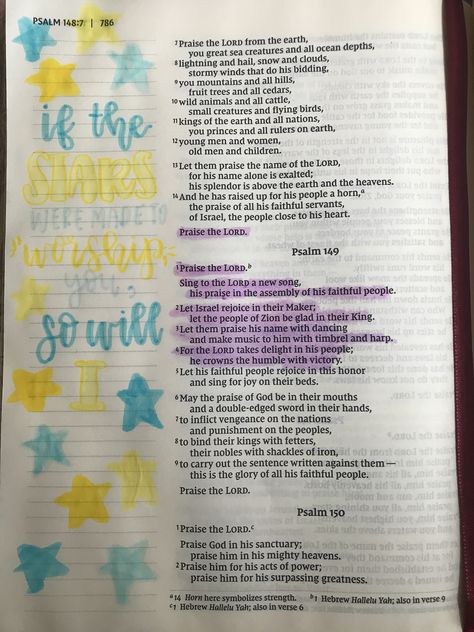 PSALM 148:7 | 786
if the
STARS
WERE MADE TO
worship
you,
so will
I
7 Praise the LORD from the earth,
you great sea creatures and all ocean depths,
8 lightning and hail, snow and clouds,
stormy winds that do his bidding,
9 you mountains and all hills,
fruit trees and all cedars,
10 wild animals and all cattle,
small creatures and flying birds,
11 kings of the earth and all nations,
you princes and all rulers on earth,
12 young men and women,
old men and children.
13 Let them praise the name of the LORD,
for his name alone is exalted;
his splendor is above the earth and the heavens.
14 And he has raised up for his people a horn,a
the praise of all his faithful servants,
of Israel, the people close to his heart.
Praise the LORD.
Psalm 149
1 Praise the LORD.b
Sing to the LORD a new song,
his praise in the assembly of his faithful people.
2 Let Israel rejoice in their Maker;
let the people of Zion be glad in their King.
3 Let them praise his name with dancing
and make music to him with timbrel and harp.
4 For the LORD takes delight in his people;
he crowns the humble with victory.
5 Let his faithful people rejoice in this honor
and sing for joy on their beds.
6 May the praise of God be in their mouths
and a double-edged sword in their hands,
7 to inflict vengeance on the nations
and punishment on the peoples,
8 to bind their kings with fetters,
their nobles with shackles of iron,
9 to carry out the sentence written against them—
this is the glory of all his faithful people.
Praise the LORD.
Psalm 150
1 Praise the LORD.c
Praise God in his sanctuary;
praise him in his mighty heavens.
2 Praise him for his acts of power;
praise him for his surpassing greatness.
a 14 Horn here symbolizes strength. b 1 Hebrew Hallelu Yah; also in verse 9
c 1 Hebrew Hallelu Yah; also in verse 6